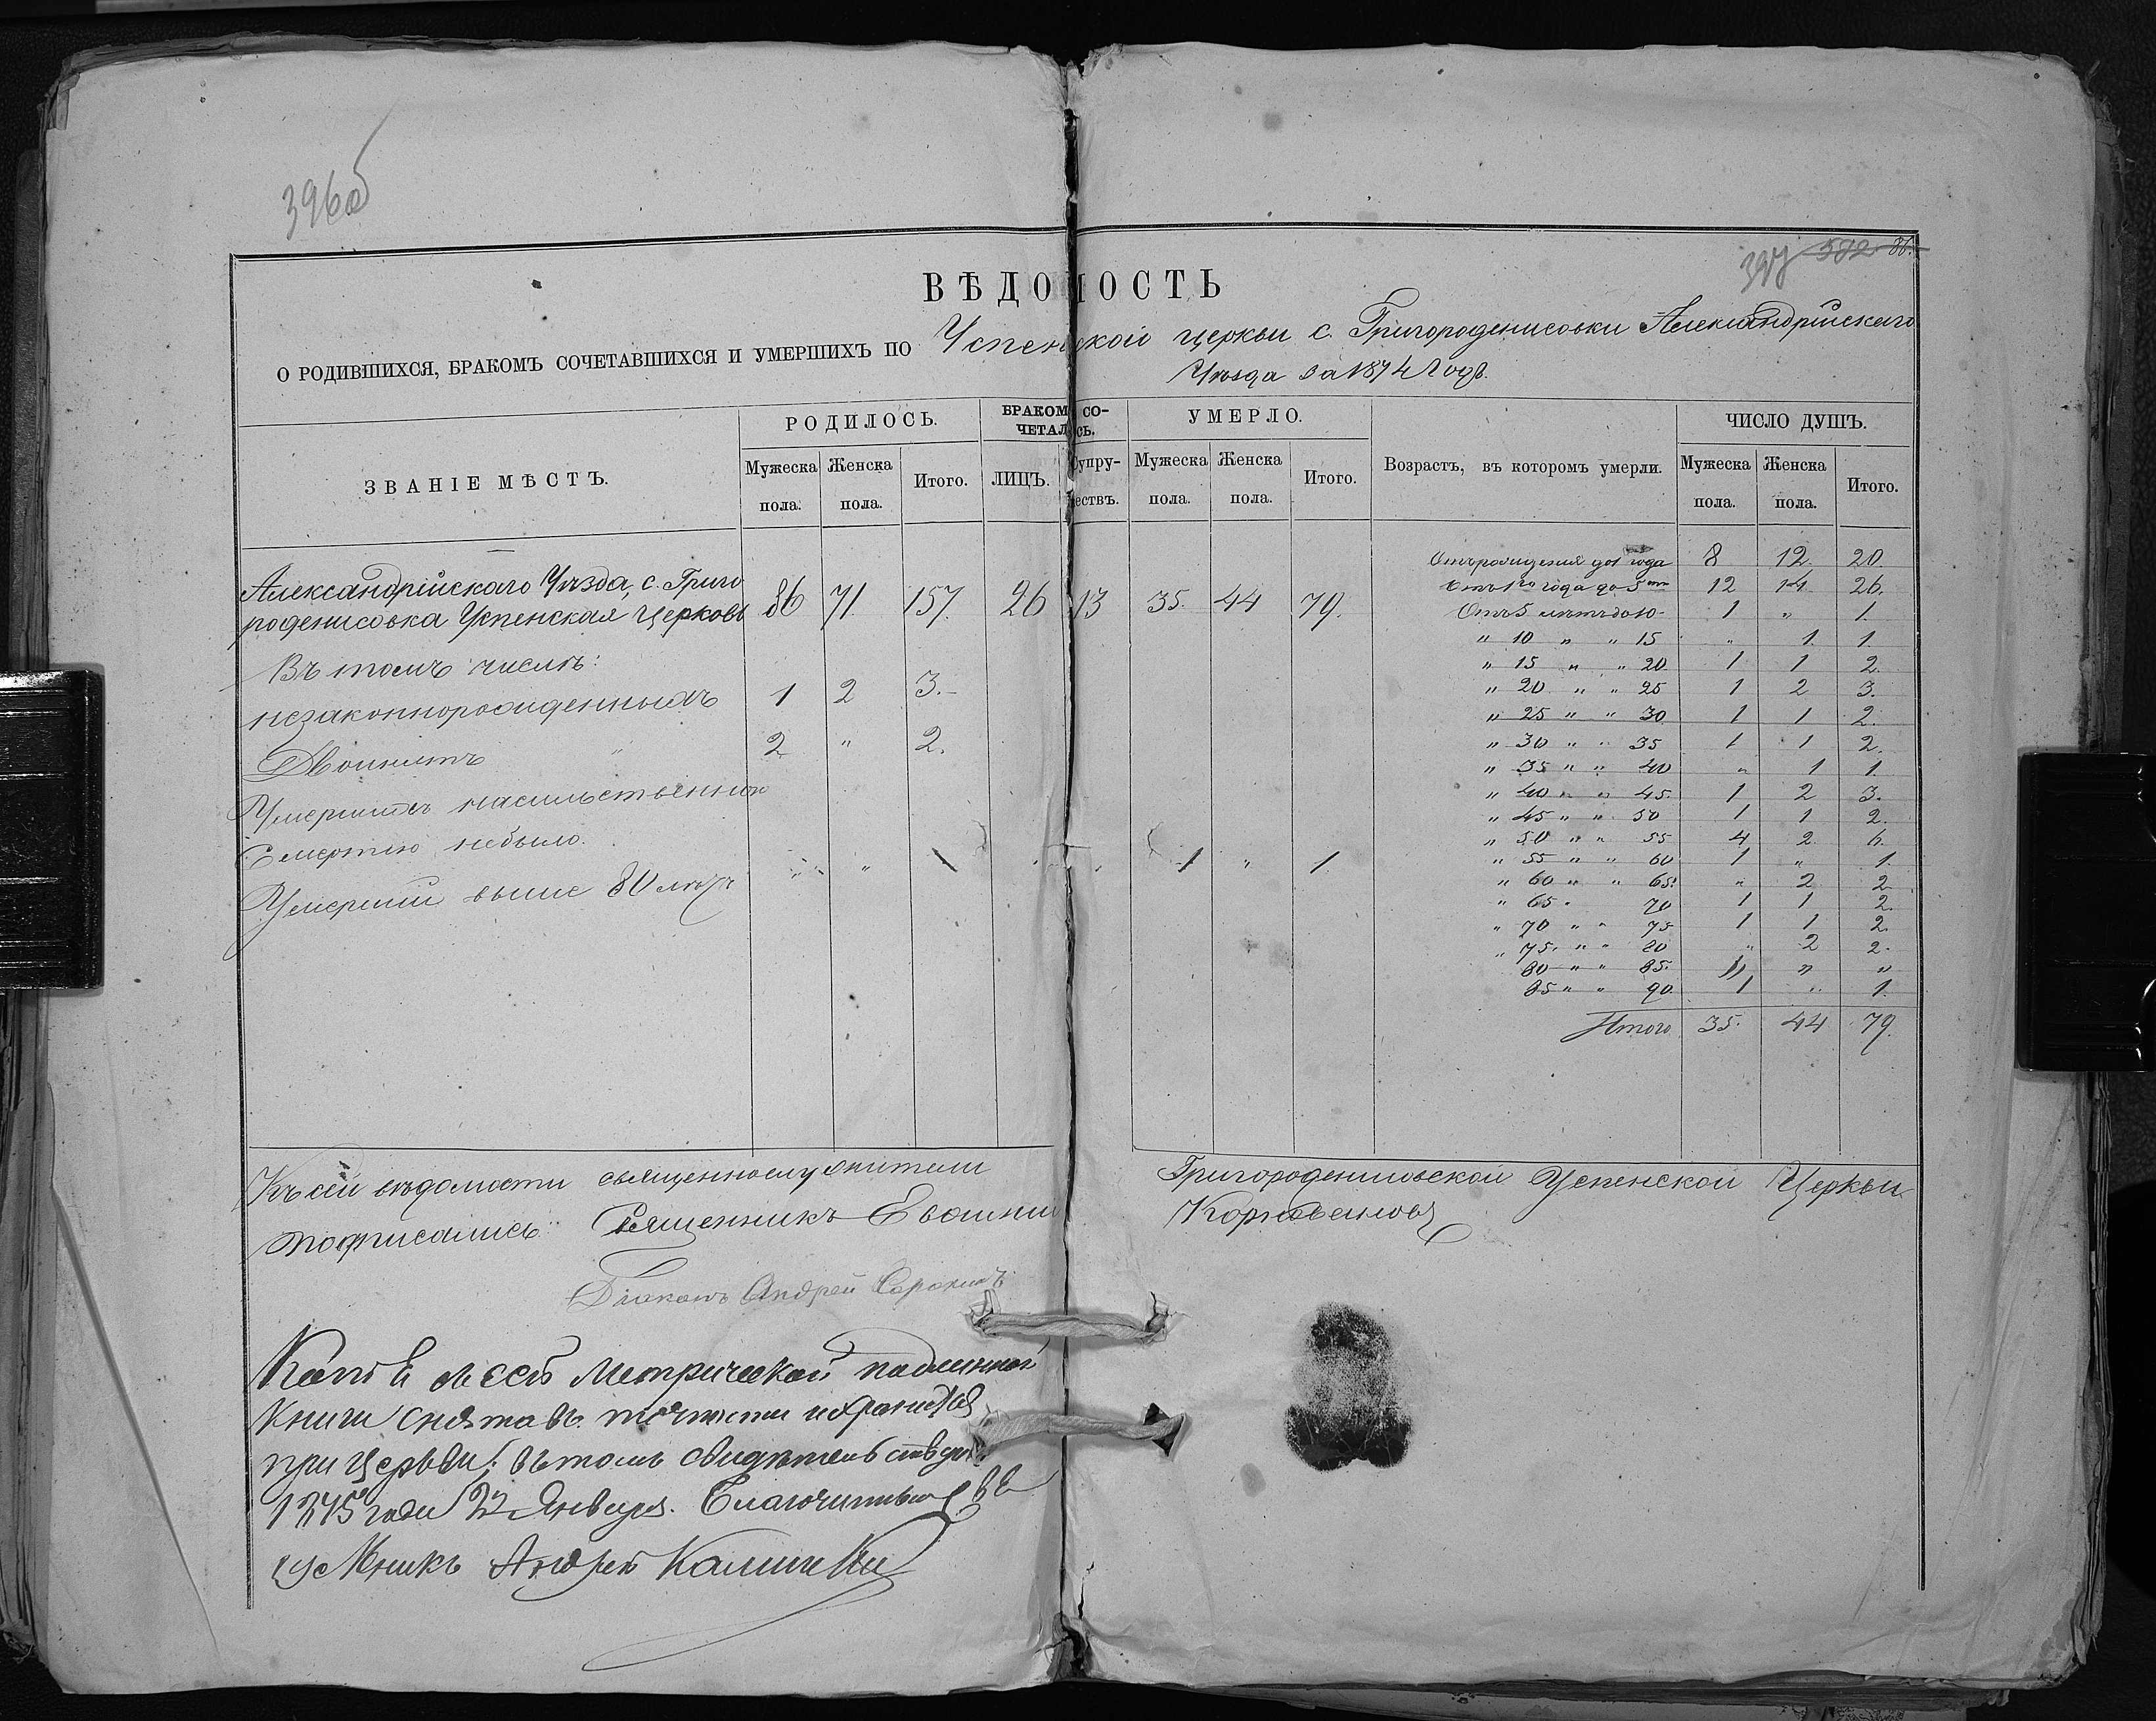 396об
397 582 86.
ВѢДОМОСТЬ
О РОДИВШИХСЯ, БРАКОМЪ СОЧЕТАВШИХСЯ И УМЕРШИХЪ ПО Успенской церкви с. Григороденисовки Александрійскаго
Уѣзда за 1874 Годъ.
ЗВАНІЕ МѢСТЪ. РОДИЛОСЬ. БРАКОМЪ СОЧЕТАЛОСЬ. УМЕРЛО. Возрастъ, въ которомъ умерли. ЧИСЛО ДУШЪ.
Мужеска пола. Женска пола. Итого. ЛИЦЪ. Супружествъ. Мужеска пола. Женска пола. Итого. Мужеска пола. Женска пола. Итого.
Александрійскаго Уѣзда, с. Григо
роденисовка Успенская Церковь 86 71 157. 26 13 35. 44 79.
Въ томъ числѣ:
незаконнорожденныхъ 1 2 3.
Двоинитъ " 2 " 2.
Умершихъ насильственною
Смертію небыло.
Умершій выше 80 лѣтъ " " \ " " 1 " 1.
Отъ рожденія до 1 года 8 12. 20.
Отъ 1го года до 5ти 12 14. 26.
Отъ 5 лѣтъ до 10 1 " 1.
" 10 " " 15 " 1. 1.
" 15 " " 20 1 1 2.
" 20 " " 25 1 2 3.
" 25 " " 30 1 1 2.
" 30 " " 35 1 1 2.
" 35 " " 40 " 1 1.
" 40 " " 45. 1 2 3.
" 45 " " 50 1 1 2.
" 50 " " 55 4 2. 6.
" 55 " " 60 1 " 1.
" 60 " " 65. " 2 2
" 65 " 70 1 1 2.
" 70 " " 75 1 1 2.
" 75. " " 80 " 2 2.
80 " " 85. " " "
85 " " 90. 1 " 1.
Итого 35. 44 79.
Къ сей вѣдомости священнослужители Григороденисовской Успенской Церкви
подписались: Священникъ Евфимій
Діаконъ Андрей Сорокинъ
Копія съ сей Метрической подлинной
книги снята въ точности и хранится
при Церкви; въ томъ свидѣтельствую.
1875 года 22 Января. Благочинный Свя
щенникъ Андрей